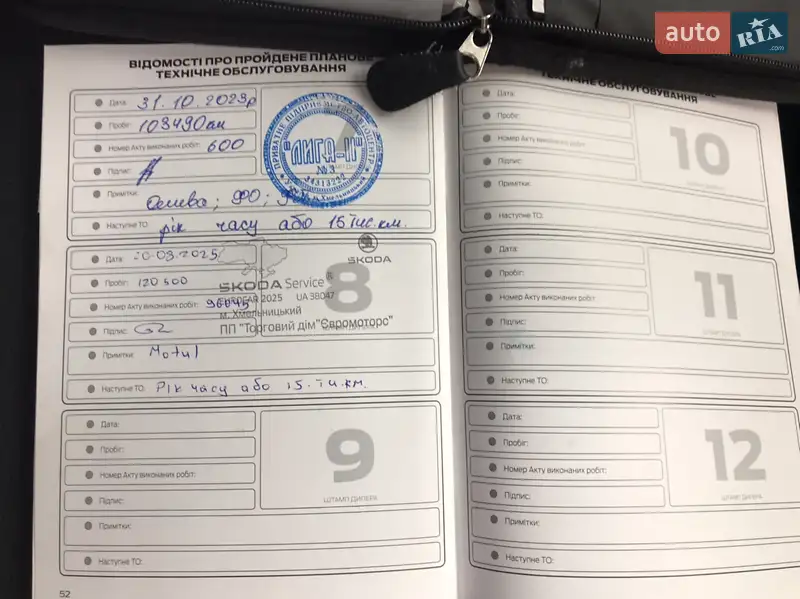 auto RIA.com
ВІДОМОСТІ ПРО ПРОЙДЕНЕ ПЛАНОВЕ
ТЕХНІЧНЕ ОБСЛУГОВУВАННЯ
Дата: 31.10.2023р
Пробіг: 103490км
Номер Акту виконаних робіт: 600
Підпис:
Примітки: Олива;
Наступне ТО: рік часу або 15 тис.км.
ПРИВАТНЕ ПІДПРИЄМСТВО АВТОЦЕНТР
"ЛИГА-П"
№3
34313222
м.Хмельницький
Дата: 20.03.2025
Пробіг: 120500
Номер Акту виконаних робіт: 96045
Підпис:
Примітки: Motul
Наступне ТО: Рік часу або 15.ти.км.
8
SKODA
SKODA Service®
EUROCAR 2025 UA 38047
м. Хмельницький
ПП "Торговий дім "Євромоторс"
Дата:
Пробіг:
Номер Акту виконаних робіт:
Підпис:
Примітки:
Наступне ТО:
9
ШТАМП ДИЛЕРА
52
ТЕХНІЧНЕ ОБСЛУГОВУВАННЯ
Дата:
Пробіг:
Номер Акту виконаних робіт:
Підпис:
Примітки:
Наступне ТО:
10
Дата:
Пробіг:
Номер Акту виконаних робіт:
Підпис:
Примітки:
Наступне ТО:
11
ШТАМП ДИЛЕРА
Дата:
Пробіг:
Номер Акту виконаних робіт:
Підпис:
Примітки:
Наступне ТО:
12
ШТАМП ДИЛЕРА